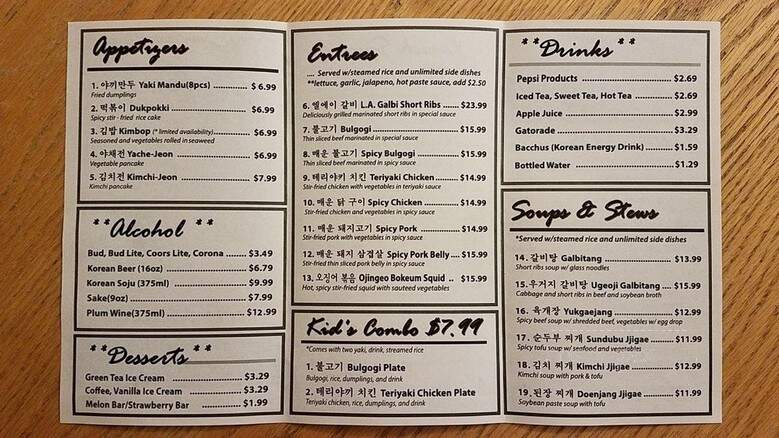 Appetizers
1. 야끼만두 Yaki Mandu(8pcs) ............ $ 6.99
Fried dumplings
2. 떡볶이 Dukpokki .................... $6.99
Spicy stir - fried rice cake
3. 김밥 Kimbop (* limited availability) ........... $6.99
Seasoned and vegetables rolled in seaweed
4. 야채전 Yache-Jeon .................... $6.99
Vegetable pancake
5. 김치전 Kimchi-Jeon ................ $7.99
Kimchi pancake
**Alcohol **
Bud, Bud Lite, Coors Lite, Corona ........ $3.49
Korean Beer (16oz) ........................ $6.79
Korean Soju (375ml) ...................... $9.99
Sake(9oz) ................................. $7.99
Plum Wine(375ml) ..................... $12.99
**Desserts **
Green Tea Ice Cream .................... $3.29
Coffee, Vanilla Ice Cream ............. $3.29
Melon Bar/Strawberry Bar .......... $1.99
Entrees
.... Served w/steamed rice and unlimited side dishes
**lettuce, garlic, jalapeno, hot paste sauce, add $2.50
6. 엘에이 갈비 L.A. Galbi Short Ribs ....... $23.99
Deliciously grilled marinated short ribs in special sauce
7. 불고기 Bulgogi ........................ $15.99
Thin sliced beef marinated in special sauce
8. 매운 불고기 Spicy Bulgogi ............... $15.99
Thin sliced beef marinated in spicy sauce
9. 테리야키 치킨 Teriyaki Chicken ........ $14.99
Stir-fried chicken with vegetables in teriyaki sauce
10. 매운 닭 구이 Spicy Chicken ............ $14.99
Stir-fried chicken and vegetables in spicy sauce
11. 매운 돼지고기 Spicy Pork ............. $14.99
Stir-fried pork with vegetables in spicy sauce
12. 매운 돼지 삼겹살 Spicy Pork Belly .... $15.99
Stir-fried thin sliced pork belly in spicy sauce
13. 오징어 볶음 Ojingeo Bokeum Squid .. $15.99
Hot, spicy stir-fried squid with sauteed vegetables
Kid's Combo $7.99
*Comes with two yaki, drink, streamed rice
1. 불고기 Bulgogi Plate
Bulgogi, rice, dumplings, and drink
2. 테리야끼 치킨 Teriyaki Chicken Plate
Teriyaki chicken, rice, dumplings, and drink
**Drinks **
Pepsi Products ........................... $2.69
Iced Tea, Sweet Tea, Hot Tea ........... $2.69
Apple Juice ............................... $2.99
Gatorade .................................. $3.29
Bacchus (Korean Energy Drink) ........ $1.59
Bottled Water ............................ $1.29
Soups & Stews
*Served w/steamed rice and unlimited side dishes
14. 갈비탕 Galbitang ..................... $13.99
Short ribs soup w/ glass noodles
15. 우거지 갈비탕 Ugeoji Galbitang .... $15.99
Cabbage and short ribs in beef and soybean broth
16. 육개장 Yukgaejang ................. $12.99
Spicy beef soup w/ shredded beef, vegetables w/ egg drop
17. 순두부 찌개 Sundubu Jjigae ........ $11.99
Spicy tofu soup w/ seafood and vegetables
18. 김치 찌개 Kimchi Jjigae ............. $12.99
Kimchi soup with pork & tofu
19. 된장 찌개 Doenjang Jjigae .......... $11.99
Soybean paste soup with tofu